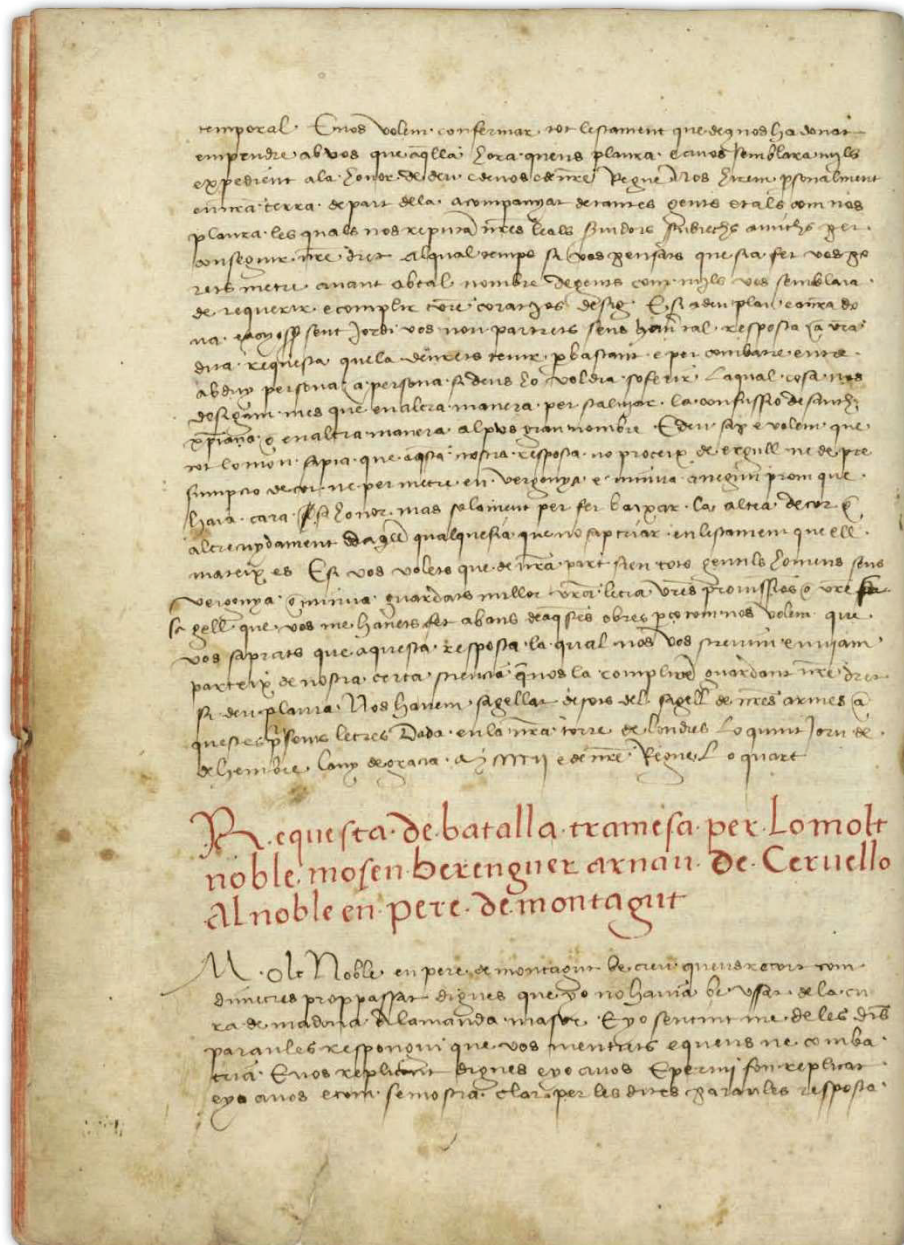 temporal. E nos volem confermar tot lestament que deus nos ha donat
empendre ab vos que aq̃lla hora quens plaura e a vos semblara mils
expedient ala honor de deu e de vos e de nr̃e Regne Nos hirem psonalment
en vr̃a terra de part dela acompanyat de tantes gents e tals com nos
plaura les quals nos reputã nr̃es leals suidors subdichs amichs per
conseguir nr̃e dret Al qual temps si vos pensats que sia fer vos po
rets metre auant ab tal nombre de gents com mils vos semblara
de requerir e complir vr̃e coratjos desig. E si a deu plau e a nr̃a do
na e a mossẽ sent Jordi vos non partrets sens hauer tal resposta a vr̃a
dita requesta que la deurets tenir p bastant e per combatre entre
abduy persona a persona si deus ho voldra soferir Laqual cosa nos
desigam mes que en altra manera per scaluiar la confussio de sanch
xp̃iana q̃ en altra manera al pus gran nombre E deu sap e volem que
tot lo mon sapia que aq̃sta nostra resposta no proceix de ergull ne de pre
sumpcio de cor ne per metre en vergonya e iniuria a negun prom que
haia cara sa honor mas solament per fer baixar la altea de cor e
altre nydament daq̃ll qualque sia que no sap triar en lestament que ell
mateix es E si vos volets que de nr̃a part sien tots gentils homens sens
vergonya e iniuria guardats millor vr̃a letra vr̃es promissios e vr̃e
sagell que vos me hauets fet abans de aq̃stes obres pço com nos volem que
vos sapiats que aquesta resposta la qual nos vos screuim e enuiam
parteix de nostra certa sciencia q̃ nos la complirẽ guardant nr̃e dret
si deu plauia Nos hauem sagellat de jots del sagell de nr̃es armes a
questes p̃sents letres Dada en la nr̃a torre de londres Lo quint Jorn de
dehembre lany de gracia M cccc ii e de nr̃e Regne Lo quart
Requesta de batalla tramesa per Lo molt
noble mosen berenguer arnau de Ceruello
Al noble en pere de montagut
Molt Noble en pere de montagut be creu queus recort com
dimecres prop passat digues que yo no hauia be vsat de la cu
ra de madona Alamanda ma sor E yo sentint me de les dits
paraules respongui que vos mentiets e queus ne comba
tria E vos replicant digues e yo a vos E per mi fon replicat
e yo a vos e com se mostra clar per les dites paraules resposta